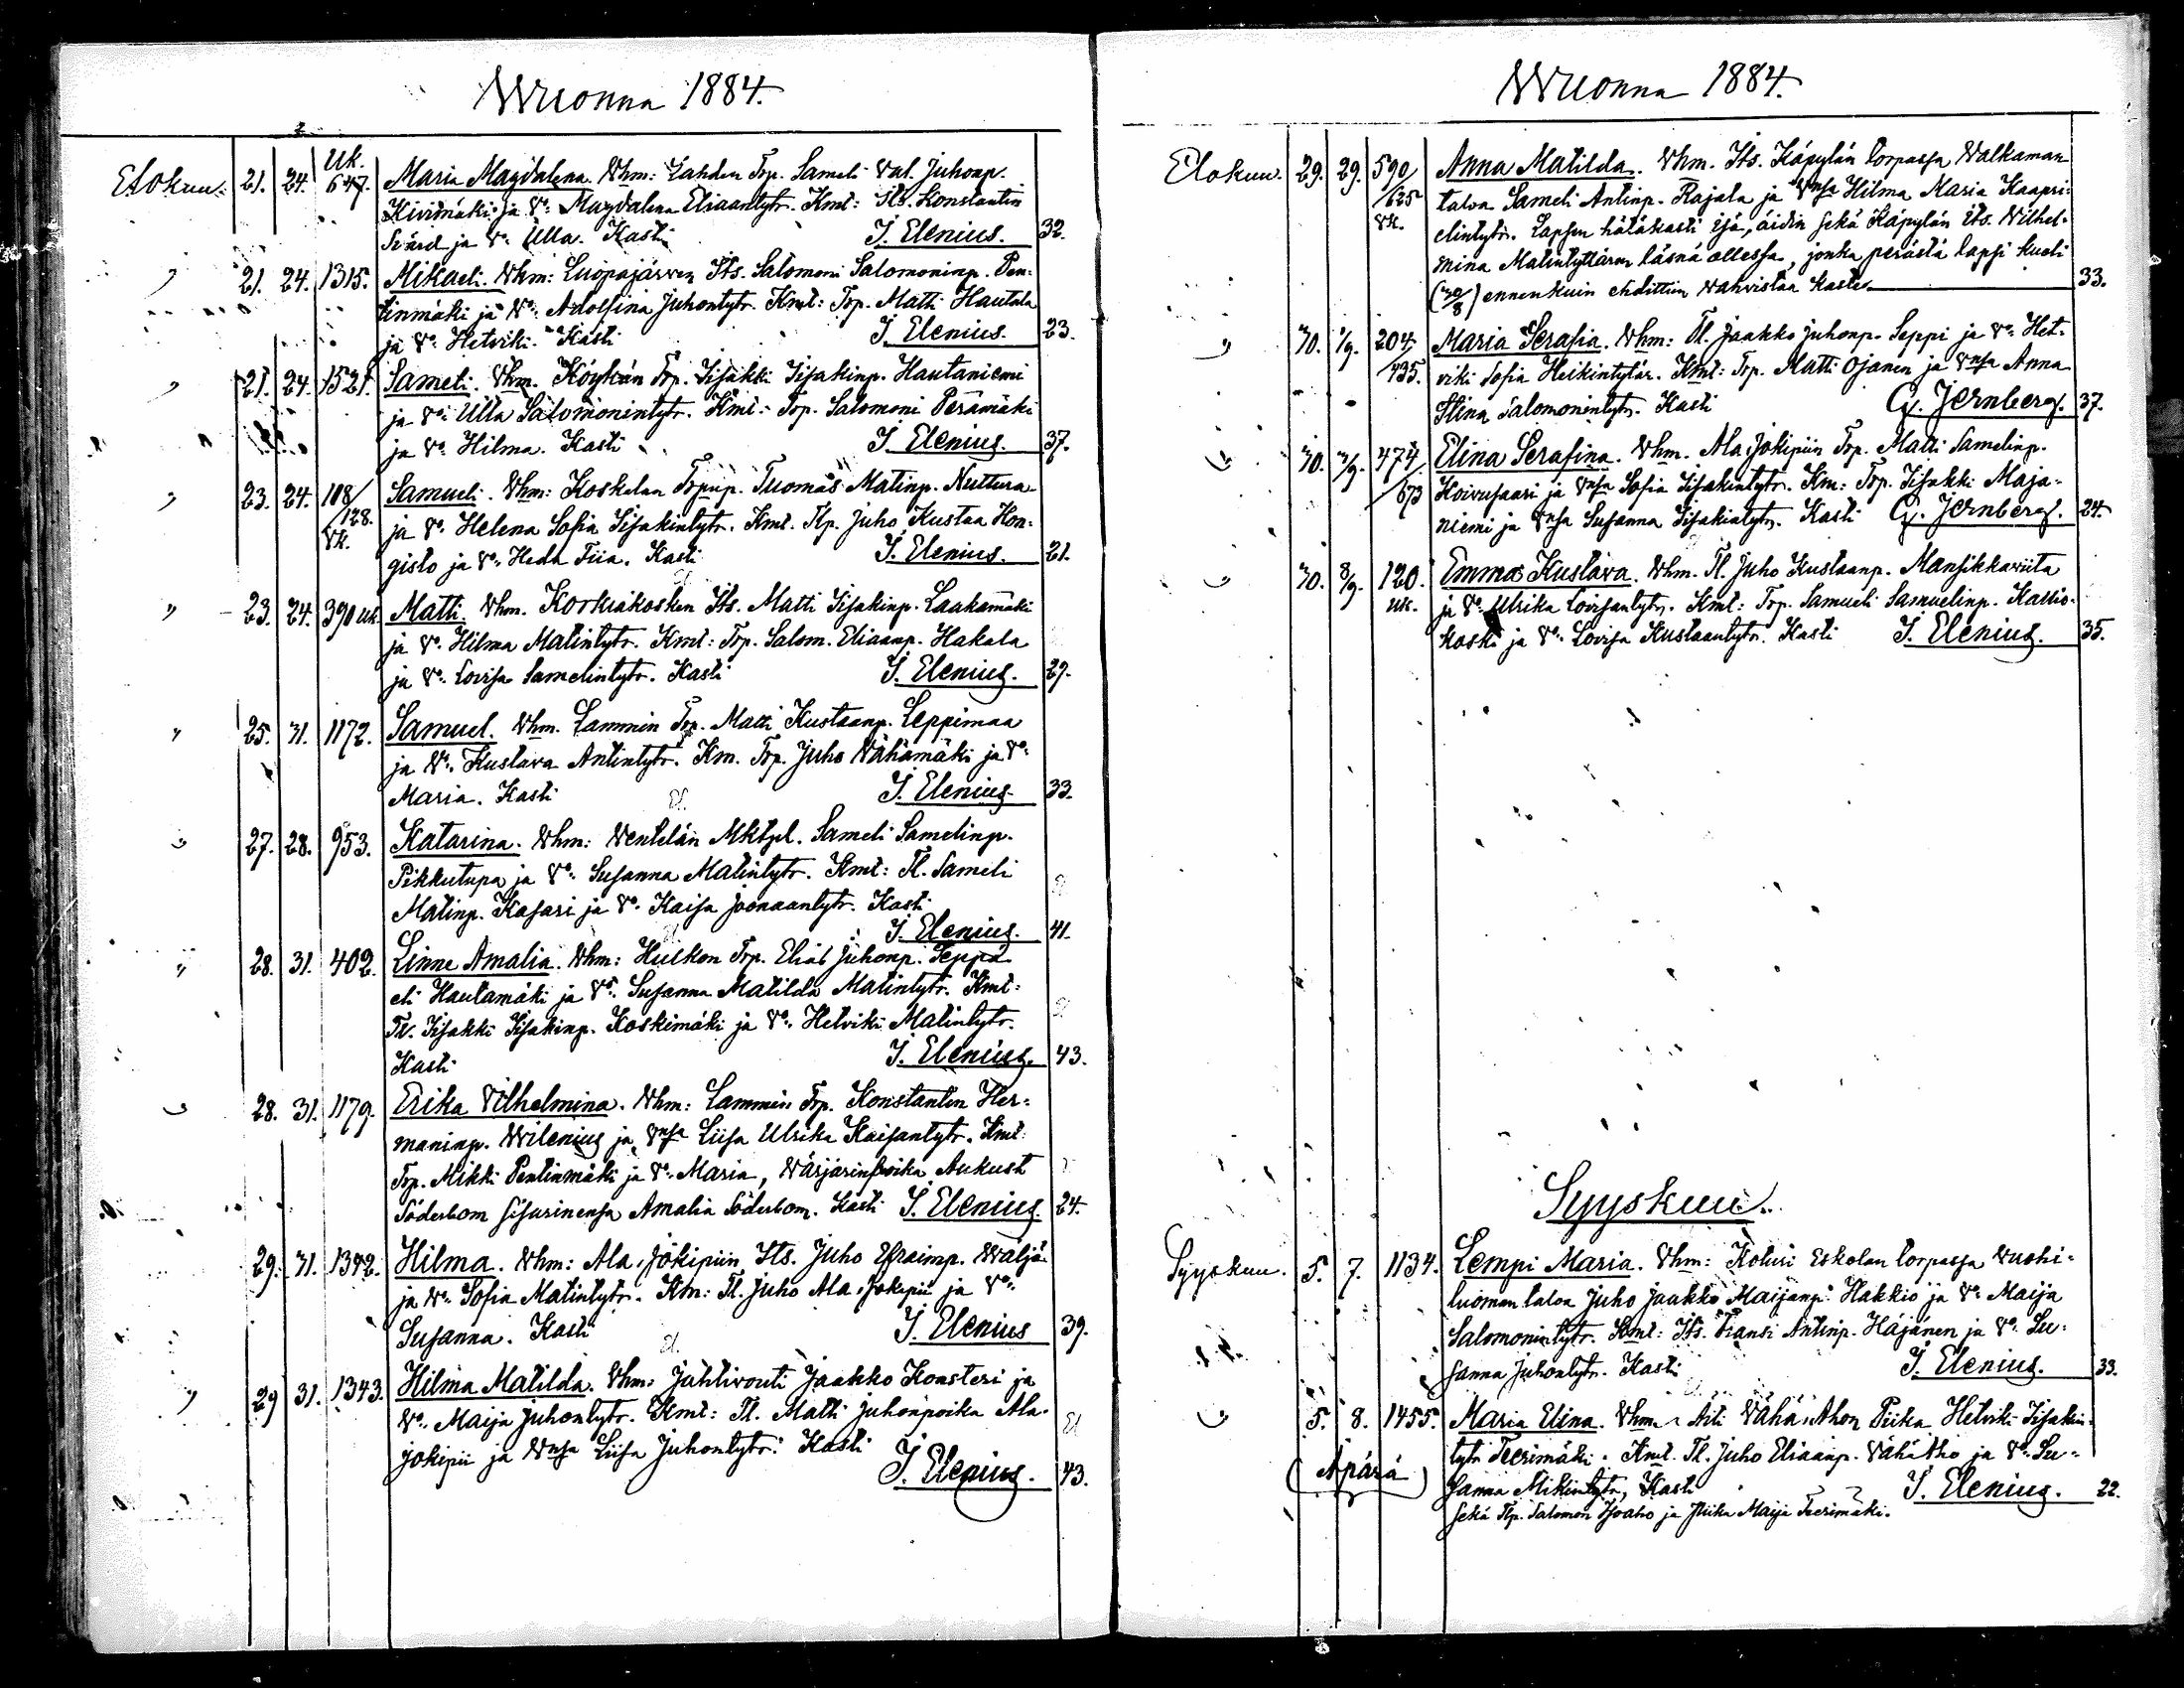 Wuonna 1884.
Elokuu. 21. 24. Uk. 647. Maria Magdalena. Vhm: Lahden Trp. Sameli Val. Juhonp.
Kivimäki ja Vo. Magdalena Eliaantytr. Kmt: Its. Konstantin
Svärd ja Vo. Ulla. Kasti J. Elenius. 32.
" 21. 24. 1315. Mikaeli. Vhm: Luopajärven Its. Salomoni Salomoninp. Pen-
tinmäki ja Vo. Adolfina Juhontytr. Kmt: Trp. Matti Hautala
ja Vo. Hetviki. Kasti J. Elenius. 23.
" 21. 24. 1521. Sameli. Vhm. Köykän Trp. Iisakki Iisakinp. Hautaniemi
ja Vo. Ulla Salomonintytr. Kmt: Trp. Salomoni Perämäki
ja Vo. Hilma. Kasti J. Elenius. 37.
" 23. 24. 108/128. Vk. Samueli. Vhm: Koskelan Trpnp. Tuomas Matinp. Nuttura
ja Vo. Helena Sofia Iisakintytr. Kmt. Tlp. Juho Kustaa Hon-
gisto ja Vo. Heda Tiia. Kasti J. Elenius. 21.
" 23. 24. 390 uk. Matti. Vhm. Korkiakosken Its. Matti Iisakinp. Laakamäki
ja Vo. Hilma Matintytr. Kmt: Trp. Salom. Eliaanp. Hakala
ja Vo. Lovisa Samelintytr. Kasti J. Elenius. 29.
" 25. 31. 1172. Samuel. Vhm. Lammin Trp. Matti Kustaanp. Leppimaa
ja Vo. Kustava Antintytr. Km. Trp. Juho Vähämäki ja Vo.
Maria. Kasti J. Elenius 33.
" 27. 28. 953. Katarina. Vhm: Ventelän Mktpl. Sameli Samelinp.
Pikkutupa ja Vo. Susanna Matintytr. Kmt: Tl. Sameli
Matinp. Kasari ja Vo. Kaisa Joonaantytr. Kasti
J. Elenius. 41.
" 28. 31. 402. Linne Amalia. Vhm: Huikon Trp. Elias Juhonp. Seppä
eli Hautamäki ja Vo. Susanna Matilda Matintytr. Kmt:
Tl. Iisakki Iisakinp. Koskimäki ja Vo. Helviki Matintytr.
Kasti J. Elenius. 43.
" 28. 31. 1179. Erika Vilhelmina. Vhm: Lammin Trp. Konstantin Her-
maninp. Wilenius ja Vnsa Liisa Ulrika Kaisantytr. Kmt:
Trp. Mikki Pentinmäki ja Vo. Maria, Värjärinpoika Aukust
Söderbom sisarinensa Amalia Söderbom. Kasti J. Elenius. 24.
29. 31. 1342. Hilma. Vhm: Ala-Jokipiin Its. Juho Efraimp. Waljä
ja Vo. Sofia Matintytr. Km: Tl. Juho Ala-Jokipii ja Vo.
Susanna. Kasti J. Elenius 39.
" 29 31. 1343. Hilma Matilda. Vhm: Juhtivouti Jaakko Konsteri ja
Vo. Maija Juhontytr. Kmt: Tl. Matti Juhonpoika Ala-
jokipii ja Vnsa Liisa Juhontytr. Kasti
J. Elenius. 43.
Wuonna 1884.
Elokuu. 29. 29. 590/625 Vk. Anna Matilda. Vhm. Its. Käpylän torpassa Valkaman
talon Sameli Antinp. Rajala ja Vnsa Hilma Maria Kaapri-
elintytr. Lapsen hätäkasti Isä, äidin sekä Käpylän Its. Vilhel-
mina Matintyttären läsnä ollessa, jonka perästä lapsi kuoli
(30/8) ennenkuin ehdittiin vahvistaa kaste. 33.
" 30. 1/9. 204/435. Maria Serafia. Vhm: Tl. Jaakko Juhonp. Seppi ja Vo. Het-
viki Sofia Heikintytär. Kmt: Trp. Matti Ojanen ja Vnsa Anna
Stina Salomonintytr. Kasti G. Jernberg. 37.
" 30. 7/9. 474/673 Elina Serafina. Vhm. Ala-Jokipiin Trp. Matti Samelinp.
Koivusaari ja Vnsa Sofia Iisakintytr. Km: Trp. Iisakki Maja-
niemi ja Vnsa Susanna Iisakintytr. Kasti G. Jernberg. 24.
" 30. 8/9. 120. uk. Emma Kustava. Vhm. Tl. Juho Kustaanp. Mansikkaviita
ja Vo. Ulrika Lovisantytr. Kmt: Trp. Samueli Samuelinp. Kallio-
koski ja Vo. Lovisa Kustaantytr. Kasti J. Elenius. 35.
Syyskuu.
Syyskuu. 5. 7. 1134. Lempi Maria. Vhm: Koturi Eskolan torpassa Vuohi-
luoman taloa Juho Jaakko Maijanp. Hakkio ja Vo. Maija
Salomonintytr. Kmt: Its. Fransi Antinp. Hajanen ja Vo. Su-
sanna Juhontytr. Kasti J. Elenius. 33.
" 5. 8. 1455. Maria Elina. Vhm: Äiti Vähä-Ahon Piika Helviki Iisakin-
tytr Teerimäki. Kmt. Tl. Juho Eliaanp. Vähä Aho ja Vo. Su-
(Äpärä) sanna Mikintytr, Kasti J. Elenius. 22.
sekä Tlp. Salomon Isoaho ja Piika Maija Teerimäki.